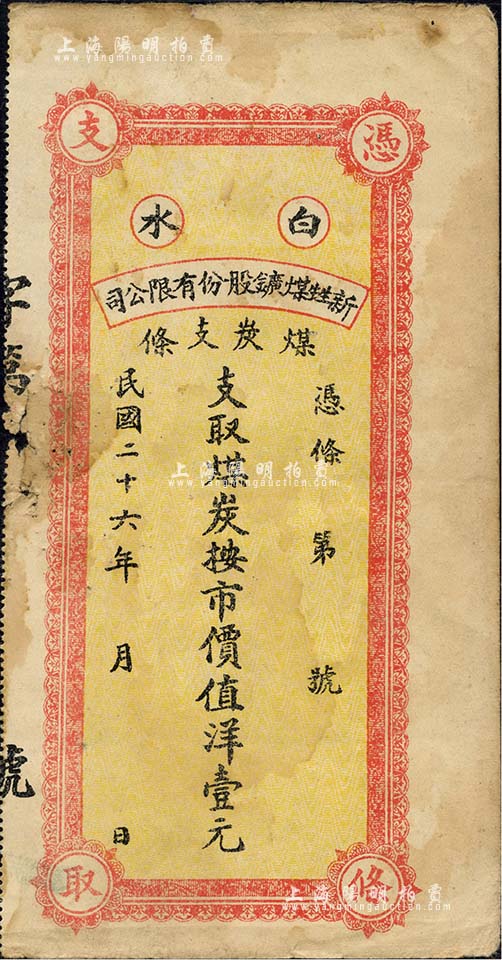 上海陽明拍賣
www.yangmingauction.com
憑條
支取
白水
新甡煤鑛股份有限公司
煤炭支條
憑條第 號
支取煤炭按市價值洋壹元
民國二十六年 月 日
字 號
上海陽明拍賣
www.yangmingauction.com
上海陽明拍賣
www.yangmingauction.com